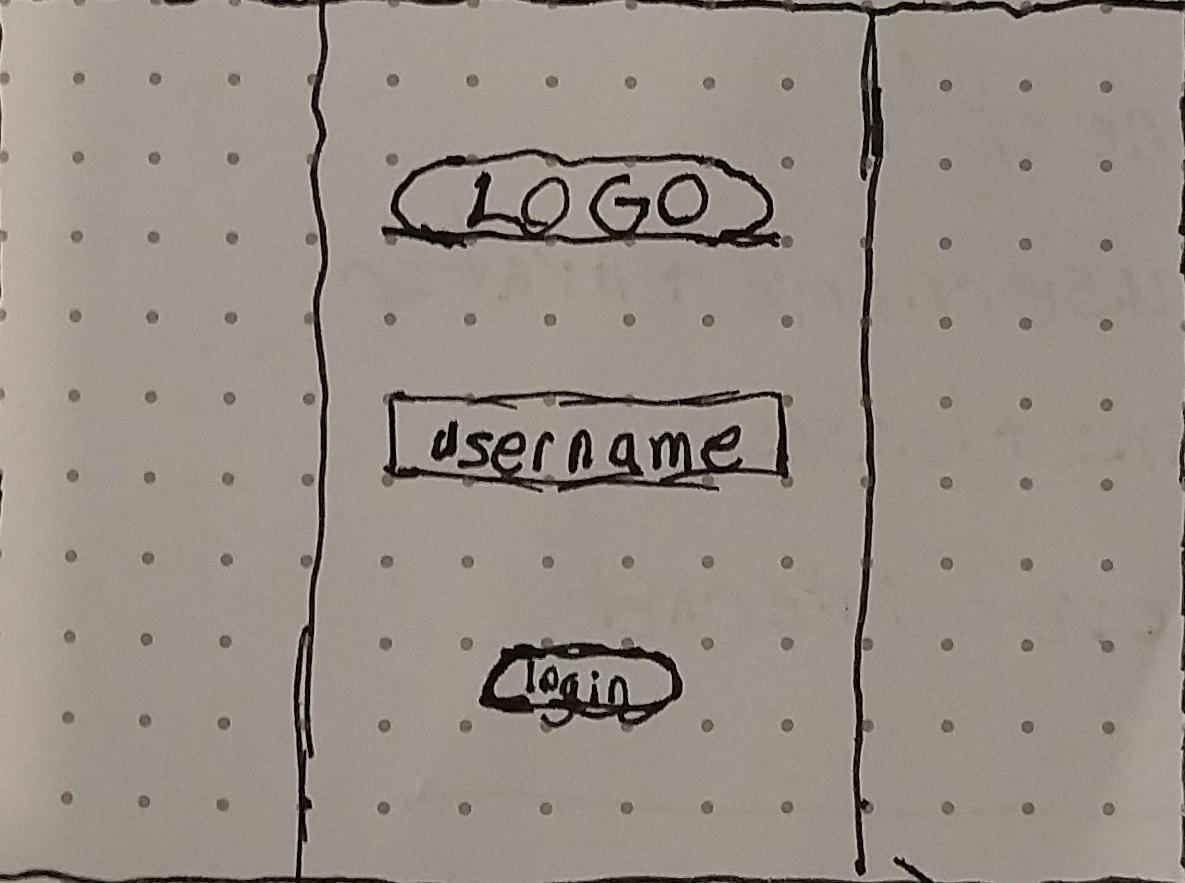 LOGO
username
login